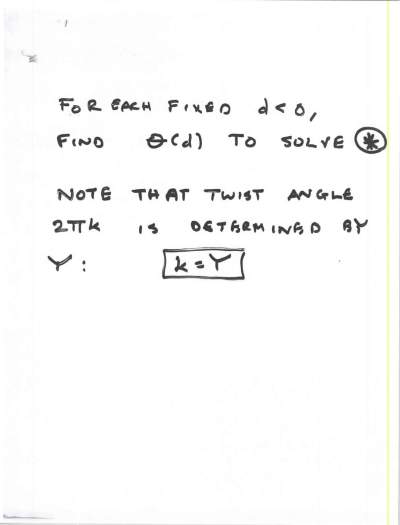 FOR EACH FIXED d < 0,
FIND Θ(d) TO SOLVE ⊛
NOTE THAT TWIST ANGLE
2πk IS DETERMINED BY
γ :    k = γ